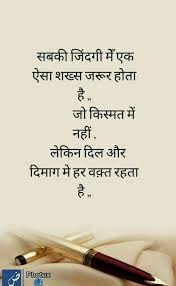 सबकी जिंदगी में एक
ऐसा शख्स जरूर होता
है ,,
जो किस्मत में
नहीं ,
लेकिन दिल और
दिमाग मे हर वक़्त रहता
है ,,
Photex